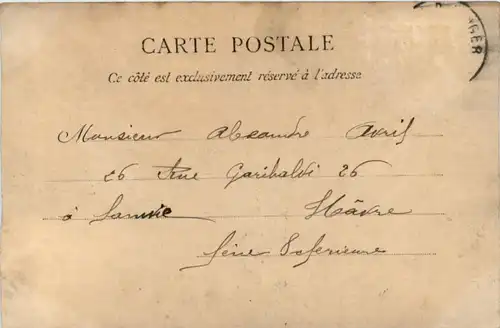 CARTE POSTALE
Ce côté est exclusivement réservé à l'adresse
Monsieur Alexandre Avril
26 Rue Garibaldi 26
à Sanvic Hâvre
Seine Inferieure